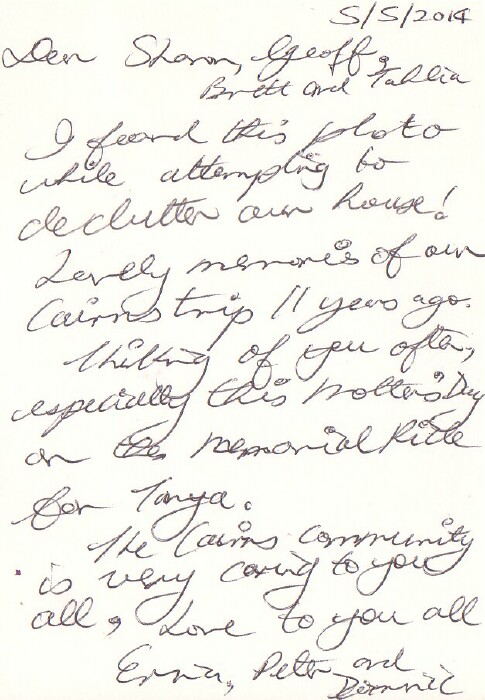 5/5/2014
Dear Sharon, Geoff,
Brett and Tahlia
I found this photo
while attempting to
declutter our house!
Lovely memories of our
Cairns trip 11 years ago.
Thinking of you often,
especially this Mother's Day
on the Memorial Ride
for Tanya.
The Cairns community
is very caring to you
all, Love to you all
Peter and
Dominic